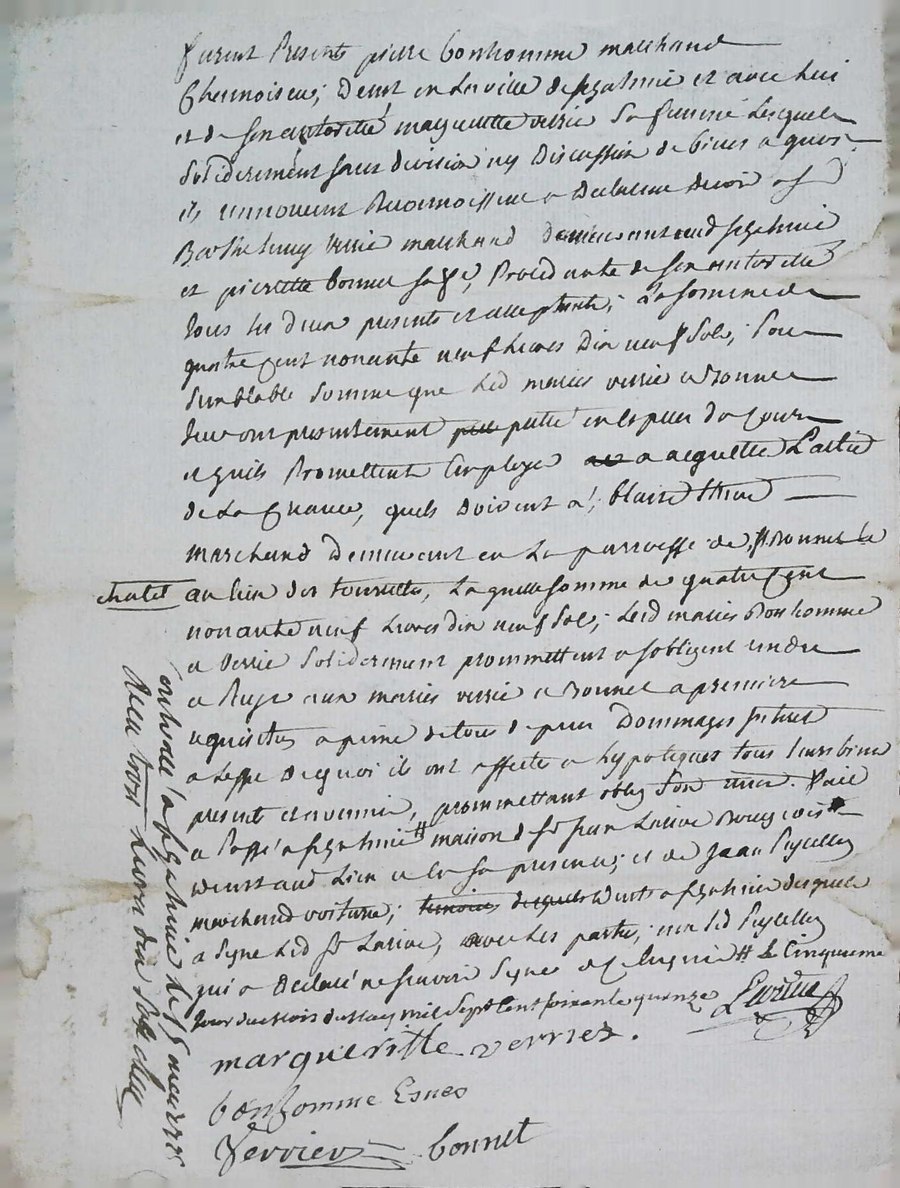 furent Presents pierre bonhomme marchand
Chamoiseur; Demt en la ville de et avec lui
et de son autorité margueritte verrie Sa femme Lesquels
Soliderement sans division ny Discussion de biens a quoi
ils renoncent a Declarene devoir a
Barthelemy Verrie marchand Demeurant aud
et pierrette bonnet sa fe, Procedante de son autoritte
tous les deux presents et acceptants; La somme de
quatre cent nonante neuf livres Dix neuf Sols; pour
Semblable Somme que Led maries verrie e Bonnet
leur ont presentement prette en especes de cours
et quils Promettent Employe a aquitter Partie
de La Creance, quils doivent a Sr blaise
marchand Demeurant en La parroisse de St Bonnet le
chatel au lieu des tourettes, La quelle somme de quatre Cent
nonante neuf Livres dix neuf Sols; Led maries Bonhomme
e Verrie Soliderement promettent e sobligent rendre
e Paye aux maries verrie e Bonnet a premiere
requisition a peine de tous depens Dommages Interest
a Leffet De quoi ils ont affecté e hypotéques tous leurs biens
present et avenir, promettant oblig Son renon. Fait
e Passé a maison de Sr jean Larive Bourgeois
demt aud Lieu e en Sa presence; et de Jean
marchand voiturie; Demt a desquels
a Signe Led Sr Larive, avec Les parties, non led
qui a Declaré ne scavoir Signe de Le Cinquieme
Jour du mois de may mil Sept Cent soixante quinze
margueritte verrier.
bonhomme
Verrier bonnet
Controlé a le 5 may 1775
Recu trois Livres dix Sols